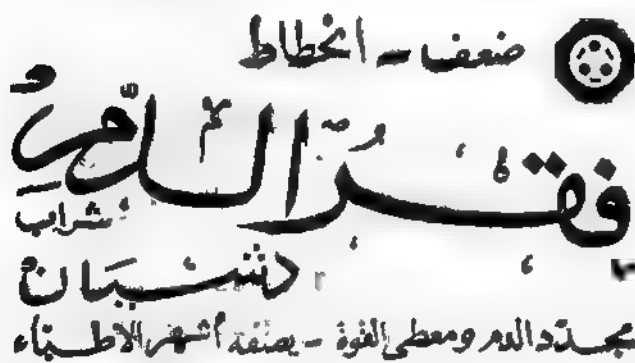 ضعف - انحطاط
فقر الدم
شراب
دشبان
مجدد الدم ومعطي القوة - يصفه أشهر الاطباء